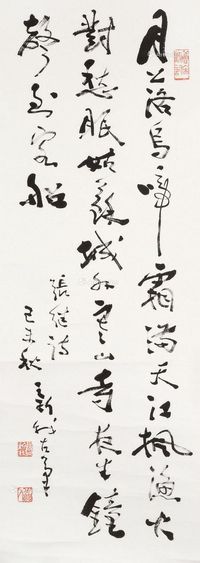 月落烏啼霜滿天江楓漁火
對愁眠姑蘇城外寒山寺夜半鐘
聲到客船
張繼詩
己未秋